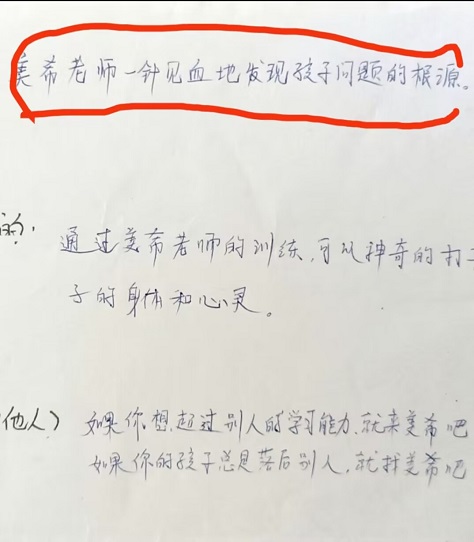 美希老师一针见血地发现孩子问题的根源。
的:
通过美希老师的训练,可以神奇的打
子的身体和心灵。
他人) 如果你想超过别人的学习能力,就来美希吧
如果你的孩子总是落后别人,就找美希吧